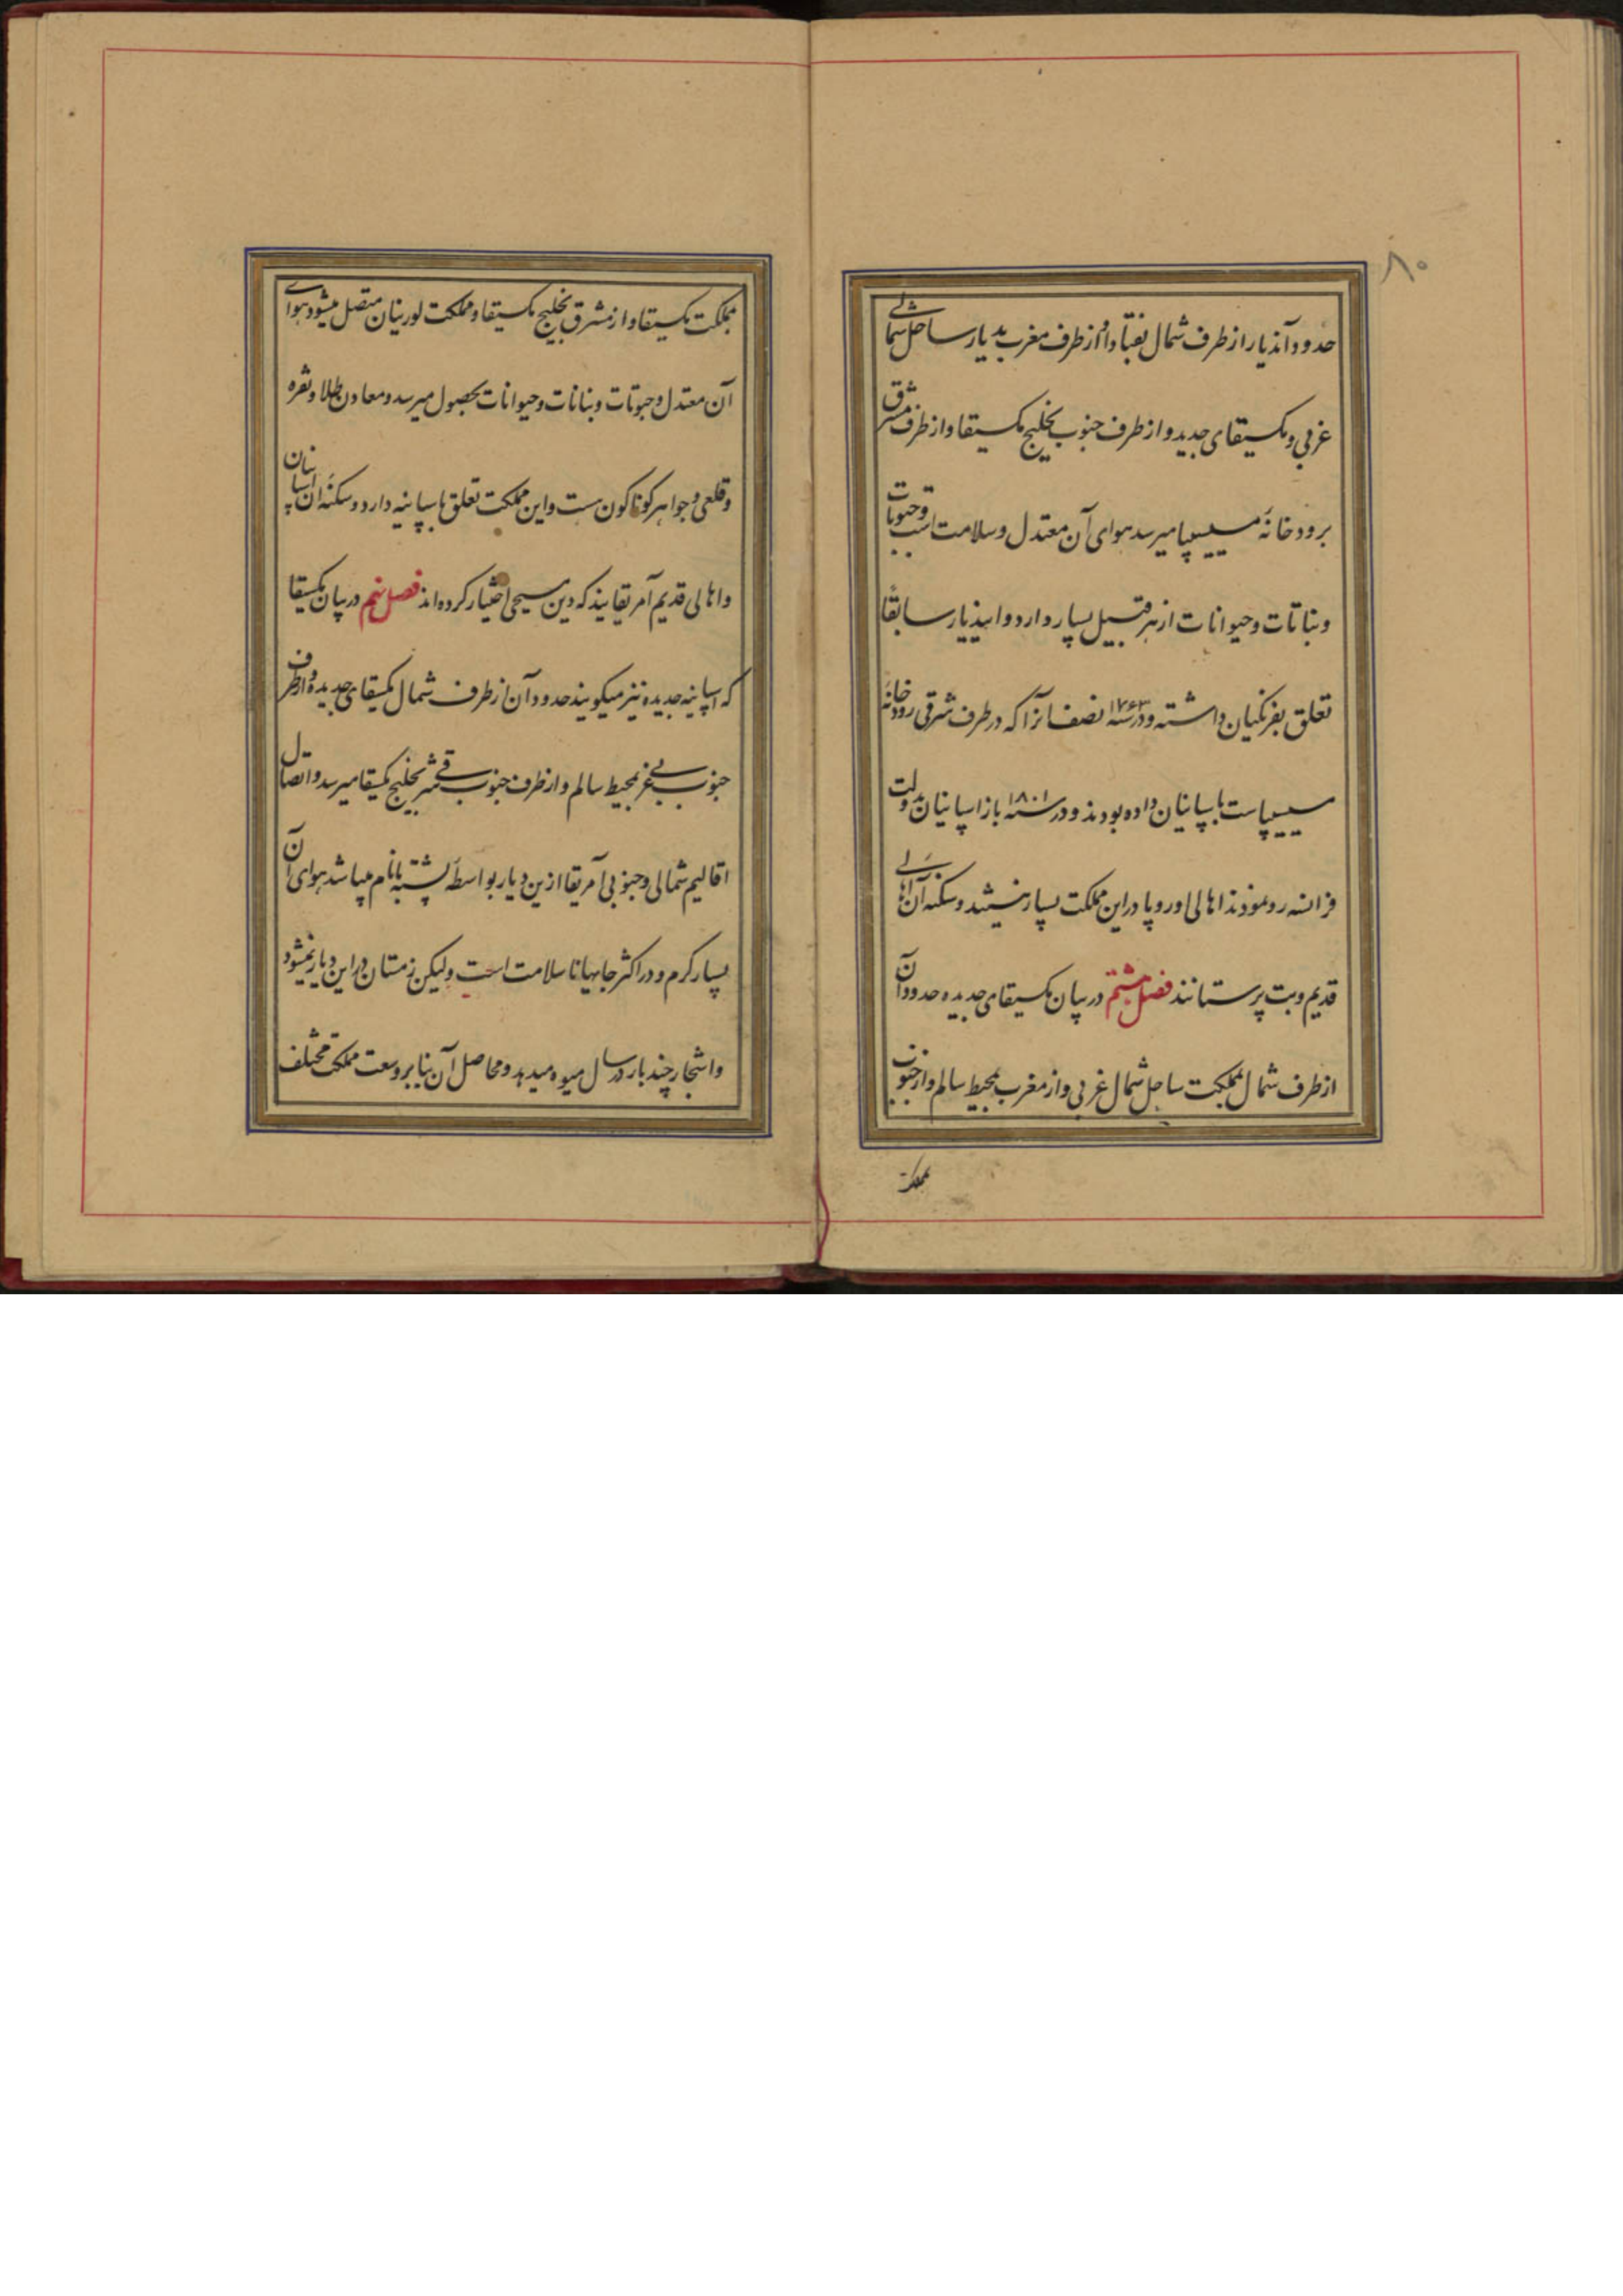 ۸۰
حدود آندیار از طرف شمال بقنادا و از طرف مغرب بدیار ساحل شمالی
غربی و مکسیقای جدید و از طرف جنوب بخلیج مکسیقا و از طرف مشرق
برودخانهٔ مسیسیپا میرسد هوای آن معتدل و سلامت است و حبوبات
و نباتات و حیوانات از هر قبیل بسیار دارد و ایندیار سابقًا
تعلق بفرنکیان داشته و در سنه ۱۷۶۳ نصف انرا که در طرف شرقی رودخانهٔ
مسیسیپا ست باسپانیان داده بودند و در سنه ۱۸۰۱ باز اسپانیان بدولت
فرانسه رد نمودند اهالی اوروپا در این مملکت بسیار نیستند و سکنه آن اهالی
قدیم و بت پرستانند فصل هشتم در بیان مکسیقای جدیده حدود آن
از طرف شمال بمملکت ساحل شمال غربی و از مغرب بمحیط سالم و از جنوب
بمملکت
بمملکت مکسیقا و از مشرق بخلیج مکسیقا و مملکت لورنیان متصل میشود هوای
آن معتدل و حبوبات و نباتات و حیوانات بحصول میرسد و معادن طلا و نقره
و قلعی و جواهر کوناکون هست و این مملکت تعلق باسپانیه دارد و سکنهٔ ان اسپانیان
و اهالی قدیم آمریقایند که دین مسیحی اختیار کرده اند فصل نهم در بیان مکسیقا
که اسپانیه جدیده نیز میکویند حدود آن از طرف شمال مکسیقای جدیده و از طرف
جنوب غربی بمحیط سالم و از طرف جنوب شرقی بخلیج مکسیقا میرسد و اتصال
اقالیم شمالی و جنوبی آمریقا ازین دیار بواسطهٔ پشتهٔ پانام میباشد هوای آن
بسیار کرم و در اکثر جایها نا سلامت است ولیکن زمستان در این دیار نمیشود
و اشجار چند بار در سال میوه میدهد و محاصل آن بنابر وسعت مملکت مختلف